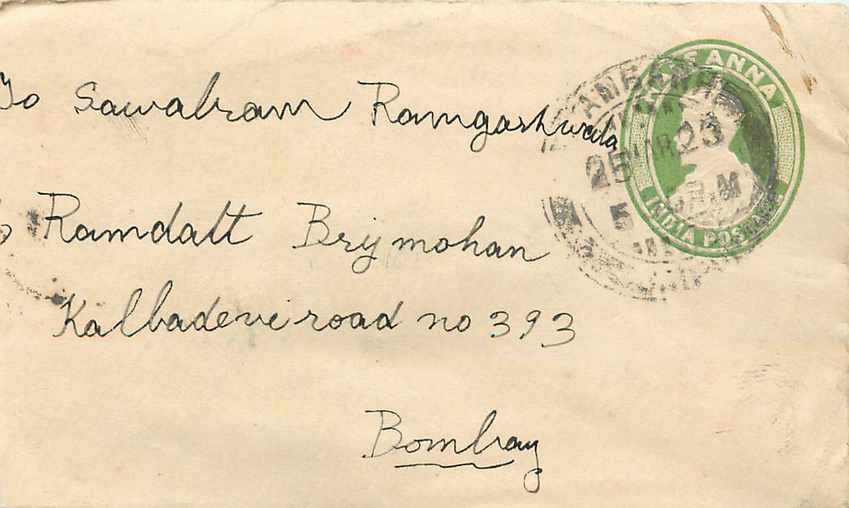 To Sawalram Ramgarhwala
Ramdatt Brijmohan
Kalbadevi road no 393
Bombay
HALF ANNA
INDIA POSTAGE
25 MAR 23